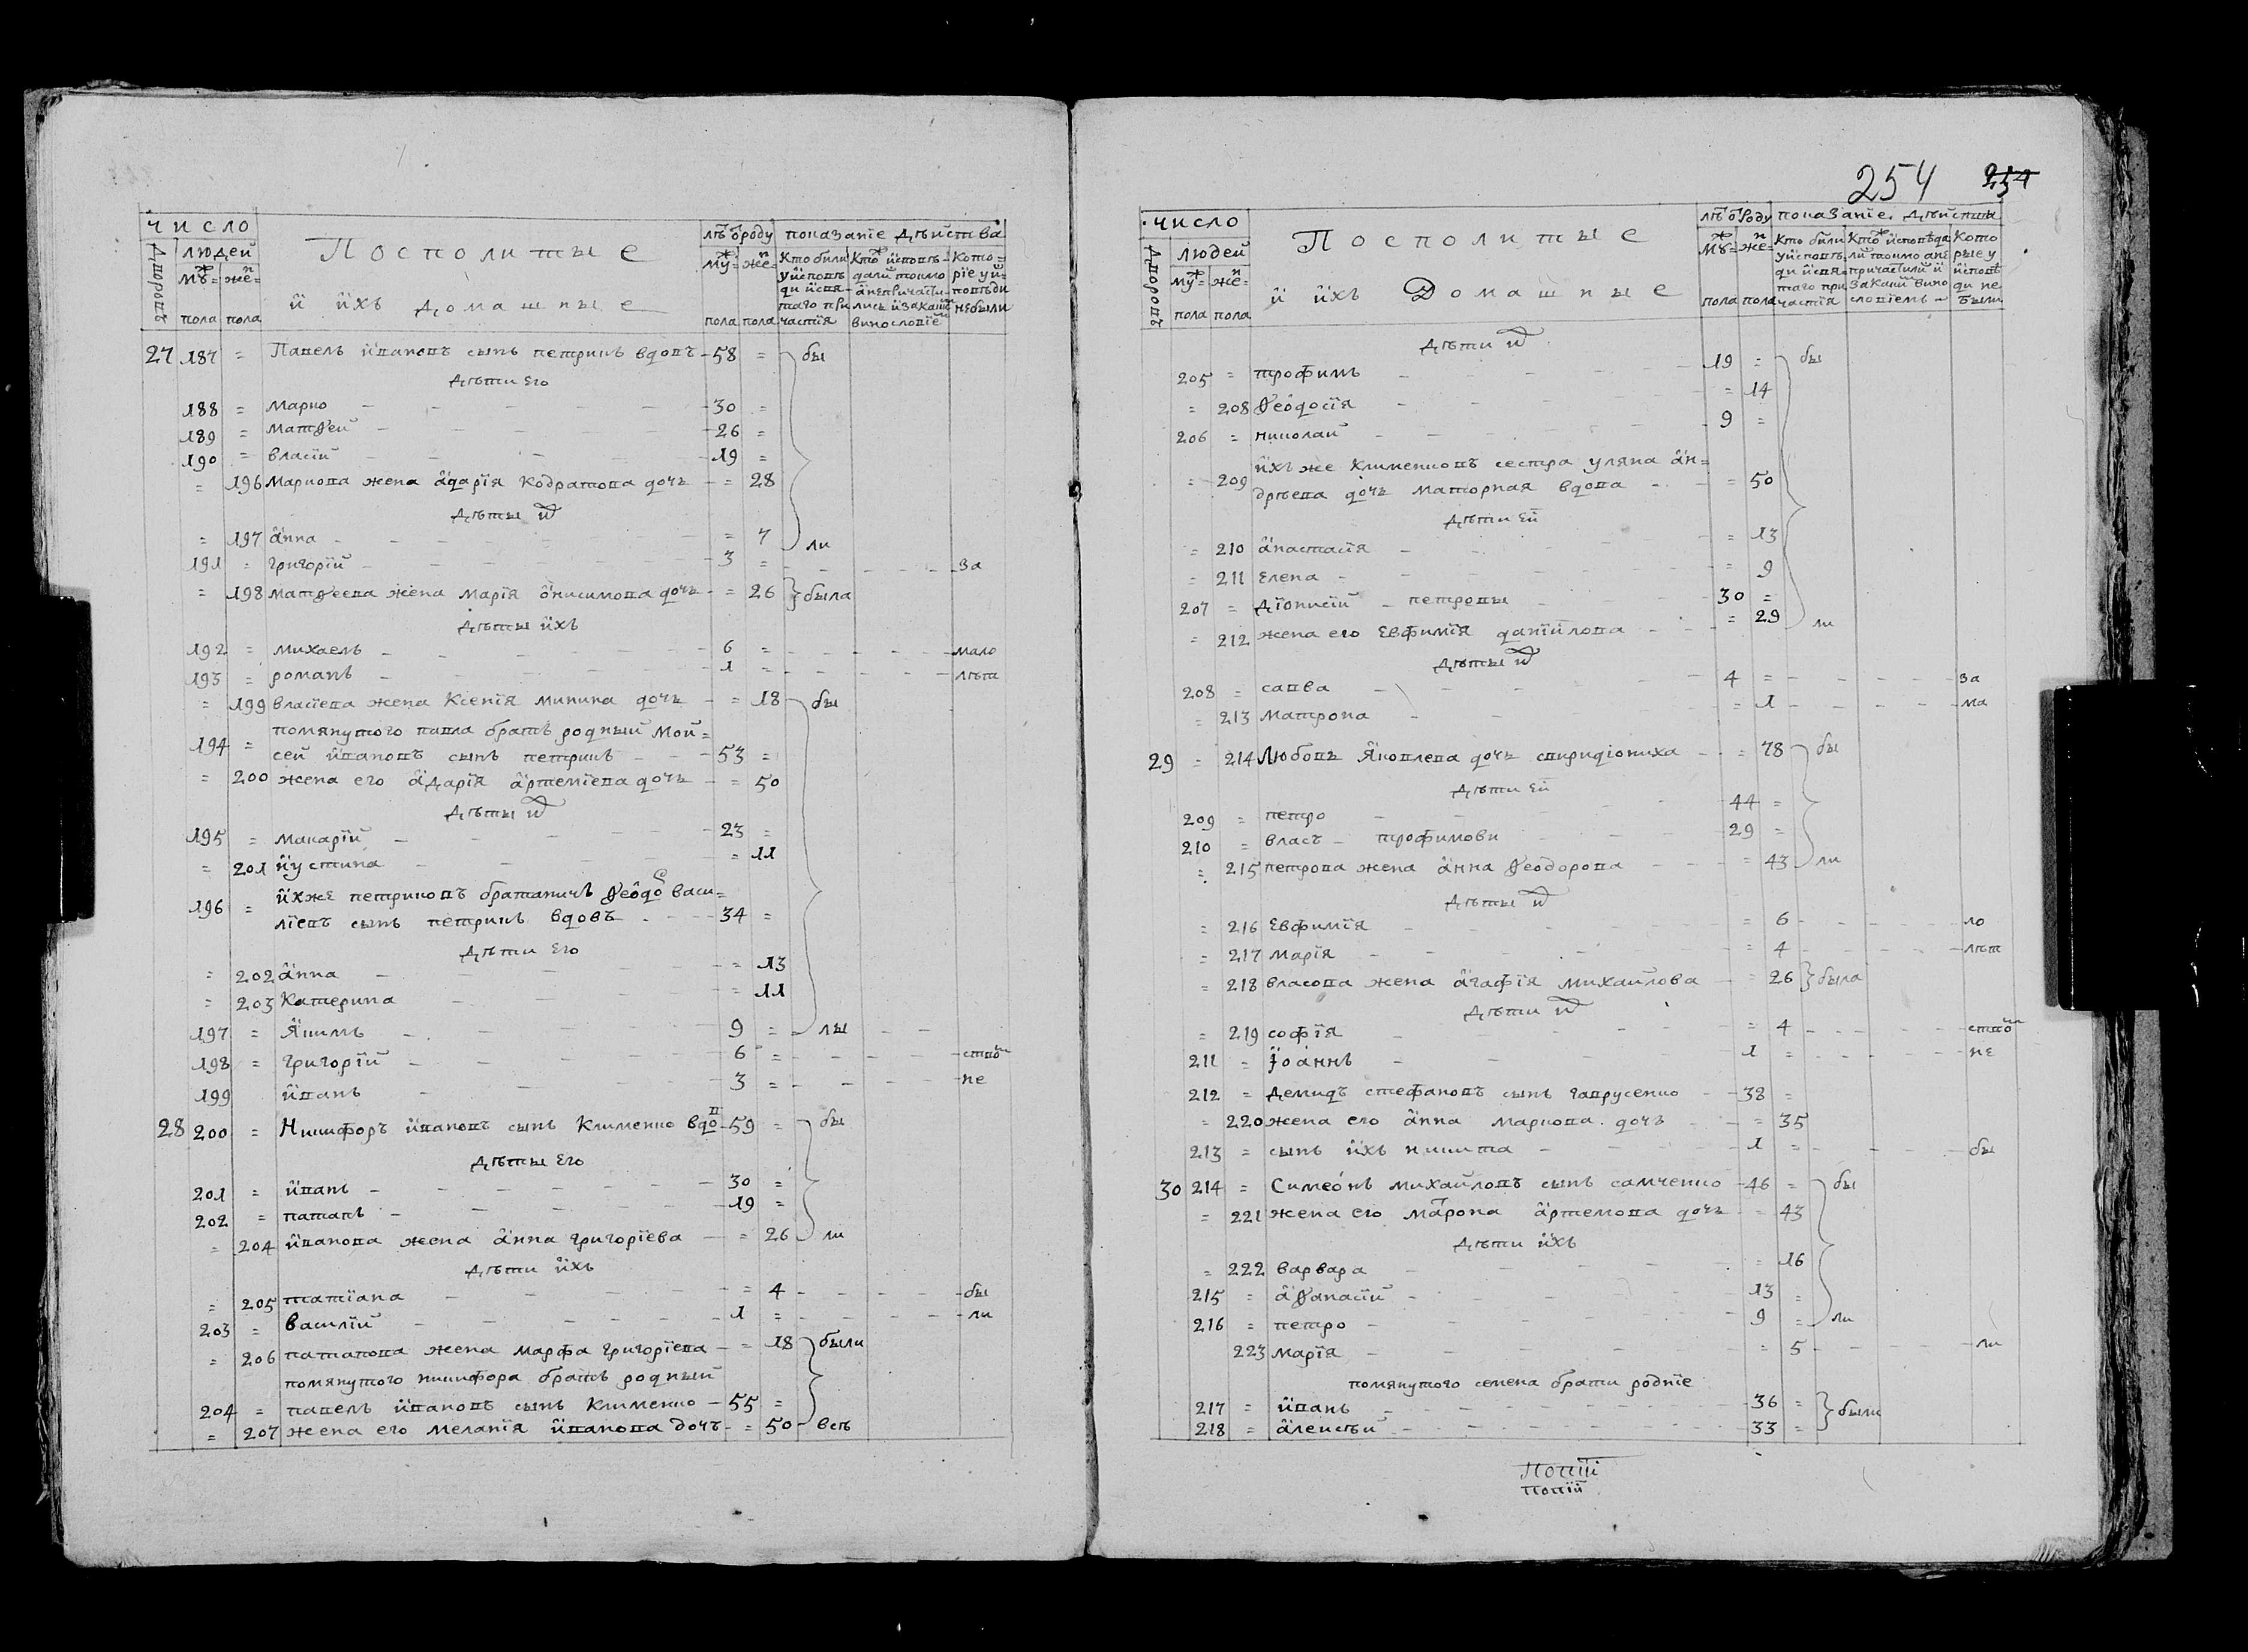 число
Дворовъ
людей
муж= жен=
пола пола
Посполитые
и ихъ домашные
лѣтъ ѿроду
муж= жен=
пола пола
показаніе дѣйства
Кто были
у исповѣ
ди и свя=
таго при
частія
Кто исповѣ=
дали токмо
а не причасти=
лись и за каким
винословіе
Кото=
ріе у и=
повѣди
не были
27 187 = Павелъ ивановъ сынъ петрикъ вдовъ 58 = бы
дѣти его
188 = Марко 30 =
189 = Матѳеи 26 =
190 = власіи 19 =
= 196 Маркова жена агарія Кодратова дочь = 28
дѣты их
= 197 анна = 7 ли
191 = григорій 3 = за
= 198 матѳеева жена марія онисимова дочь = 26 была
дѣты ихъ
192 = михаелъ 6 = мало
193 = романъ 1 = лѣта
= 199 власіева жена Ксенія минина дочь = 18 бы
помянутого павла братъ родный мои=
194 = сей ивановъ сынъ петрикъ 53 =
= 200 жена его агарія артеміева дочь = 50
дѣты их
195 = макарій 23 =
= 201 иустина = 11
ихже петриковъ братаничъ ѳеодос васи=
196 = ліевъ сынъ петрикъ вдовъ 34 =
дѣти его
= 202 анна = 13
= 203 Катерина = 11
197 = Якимъ 9 = лы
198 = григорій 6 = ство
199 иванъ 3 = не
28 200 = Никифоръ ивановъ сынъ Клименко вдов 59 = бы
дѣты его
201 = иванъ 30 =
202 = патапъ 19 =
= 204 иванова жена анна григоріева = 26 ли
дѣти ихъ
= 205 татіана = 4 бы
203 = василій 1 = ли
= 206 патапова жена марфа григоріева = 18 были
помянутого никифора братъ родный
204 = павелъ ивановъ сынъ Клименко 55 =
= 207 жена его меланія иванова дочъ = 50 всѣ
254 254
число
Дворовъ
людей
муж= же=
пола пола
Посполитые
и ихъ Домашные
лѣтъ ѿроду
муж= жен=
пола пола
показаніе дѣйствы
Кто были
у исповѣ
ди и свя=
таго при
частія
Кто исповѣда
ли токмо а не
причастили и
за каким вино
словіемъ
Кото
рые у
исповѣ
ди не
были
дѣти их
205 = трофимъ 19 = бы
= 208 ѳеодосія = 14
206 = николай 9 =
ихъ же клименковъ сестра уляна ан=
= 209 дрѣева дочъ маторная вдова = 50
дѣти ей
= 210 анастасія = 13
= 211 елена = 9
207 = діонисій петровы 30 =
= 212 жена его Евфимія данійлова = 29 ли
дѣты их
208 = савва 4 = за
= 213 матрона = 1 ма
29 = 214 Любовъ Яковлева дочъ спиридіониха = 78 бы
дѣти ей
209 = петро 44 =
210 = власъ трофимови 29 =
= 215 петрова жена анна ѳеодорова = 43 ли
дѣты их
= 216 Евфимія = 6 ло
= 217 марія = 4 лѣт
= 218 власова жена агафія михаилова = 26 была
дѣти их
= 219 софія = 4 ство
211 = Іоаннъ 1 = не
212 = Демидъ стефановъ сынъ гаврусенко 38 =
= 220 жена его анна маркова дочъ = 35
213 = сынъ ихъ никита 1 = бы
30 214 = Симеонъ михайловъ сынъ самченко 46 = бы
= 221 жена его матрона артемова дочъ = 43
дѣти ихъ
= 222 варвара = 16
215 = аѳанасій 13 =
216 = петро 9 = ли
223 марія = 5 ли
помянутого семена брати родніе
217 = иванъ 36 = были
218 = алексѣи 33 =